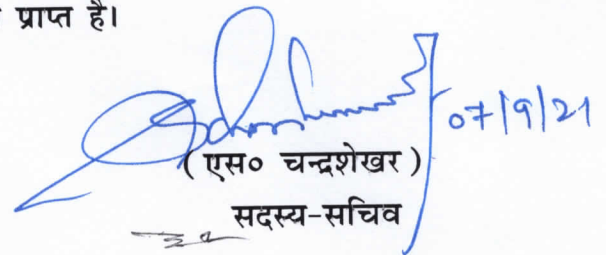 प्राप्त है।
07/9/21
(एस० चन्द्रशेखर)
सदस्य-सचिव